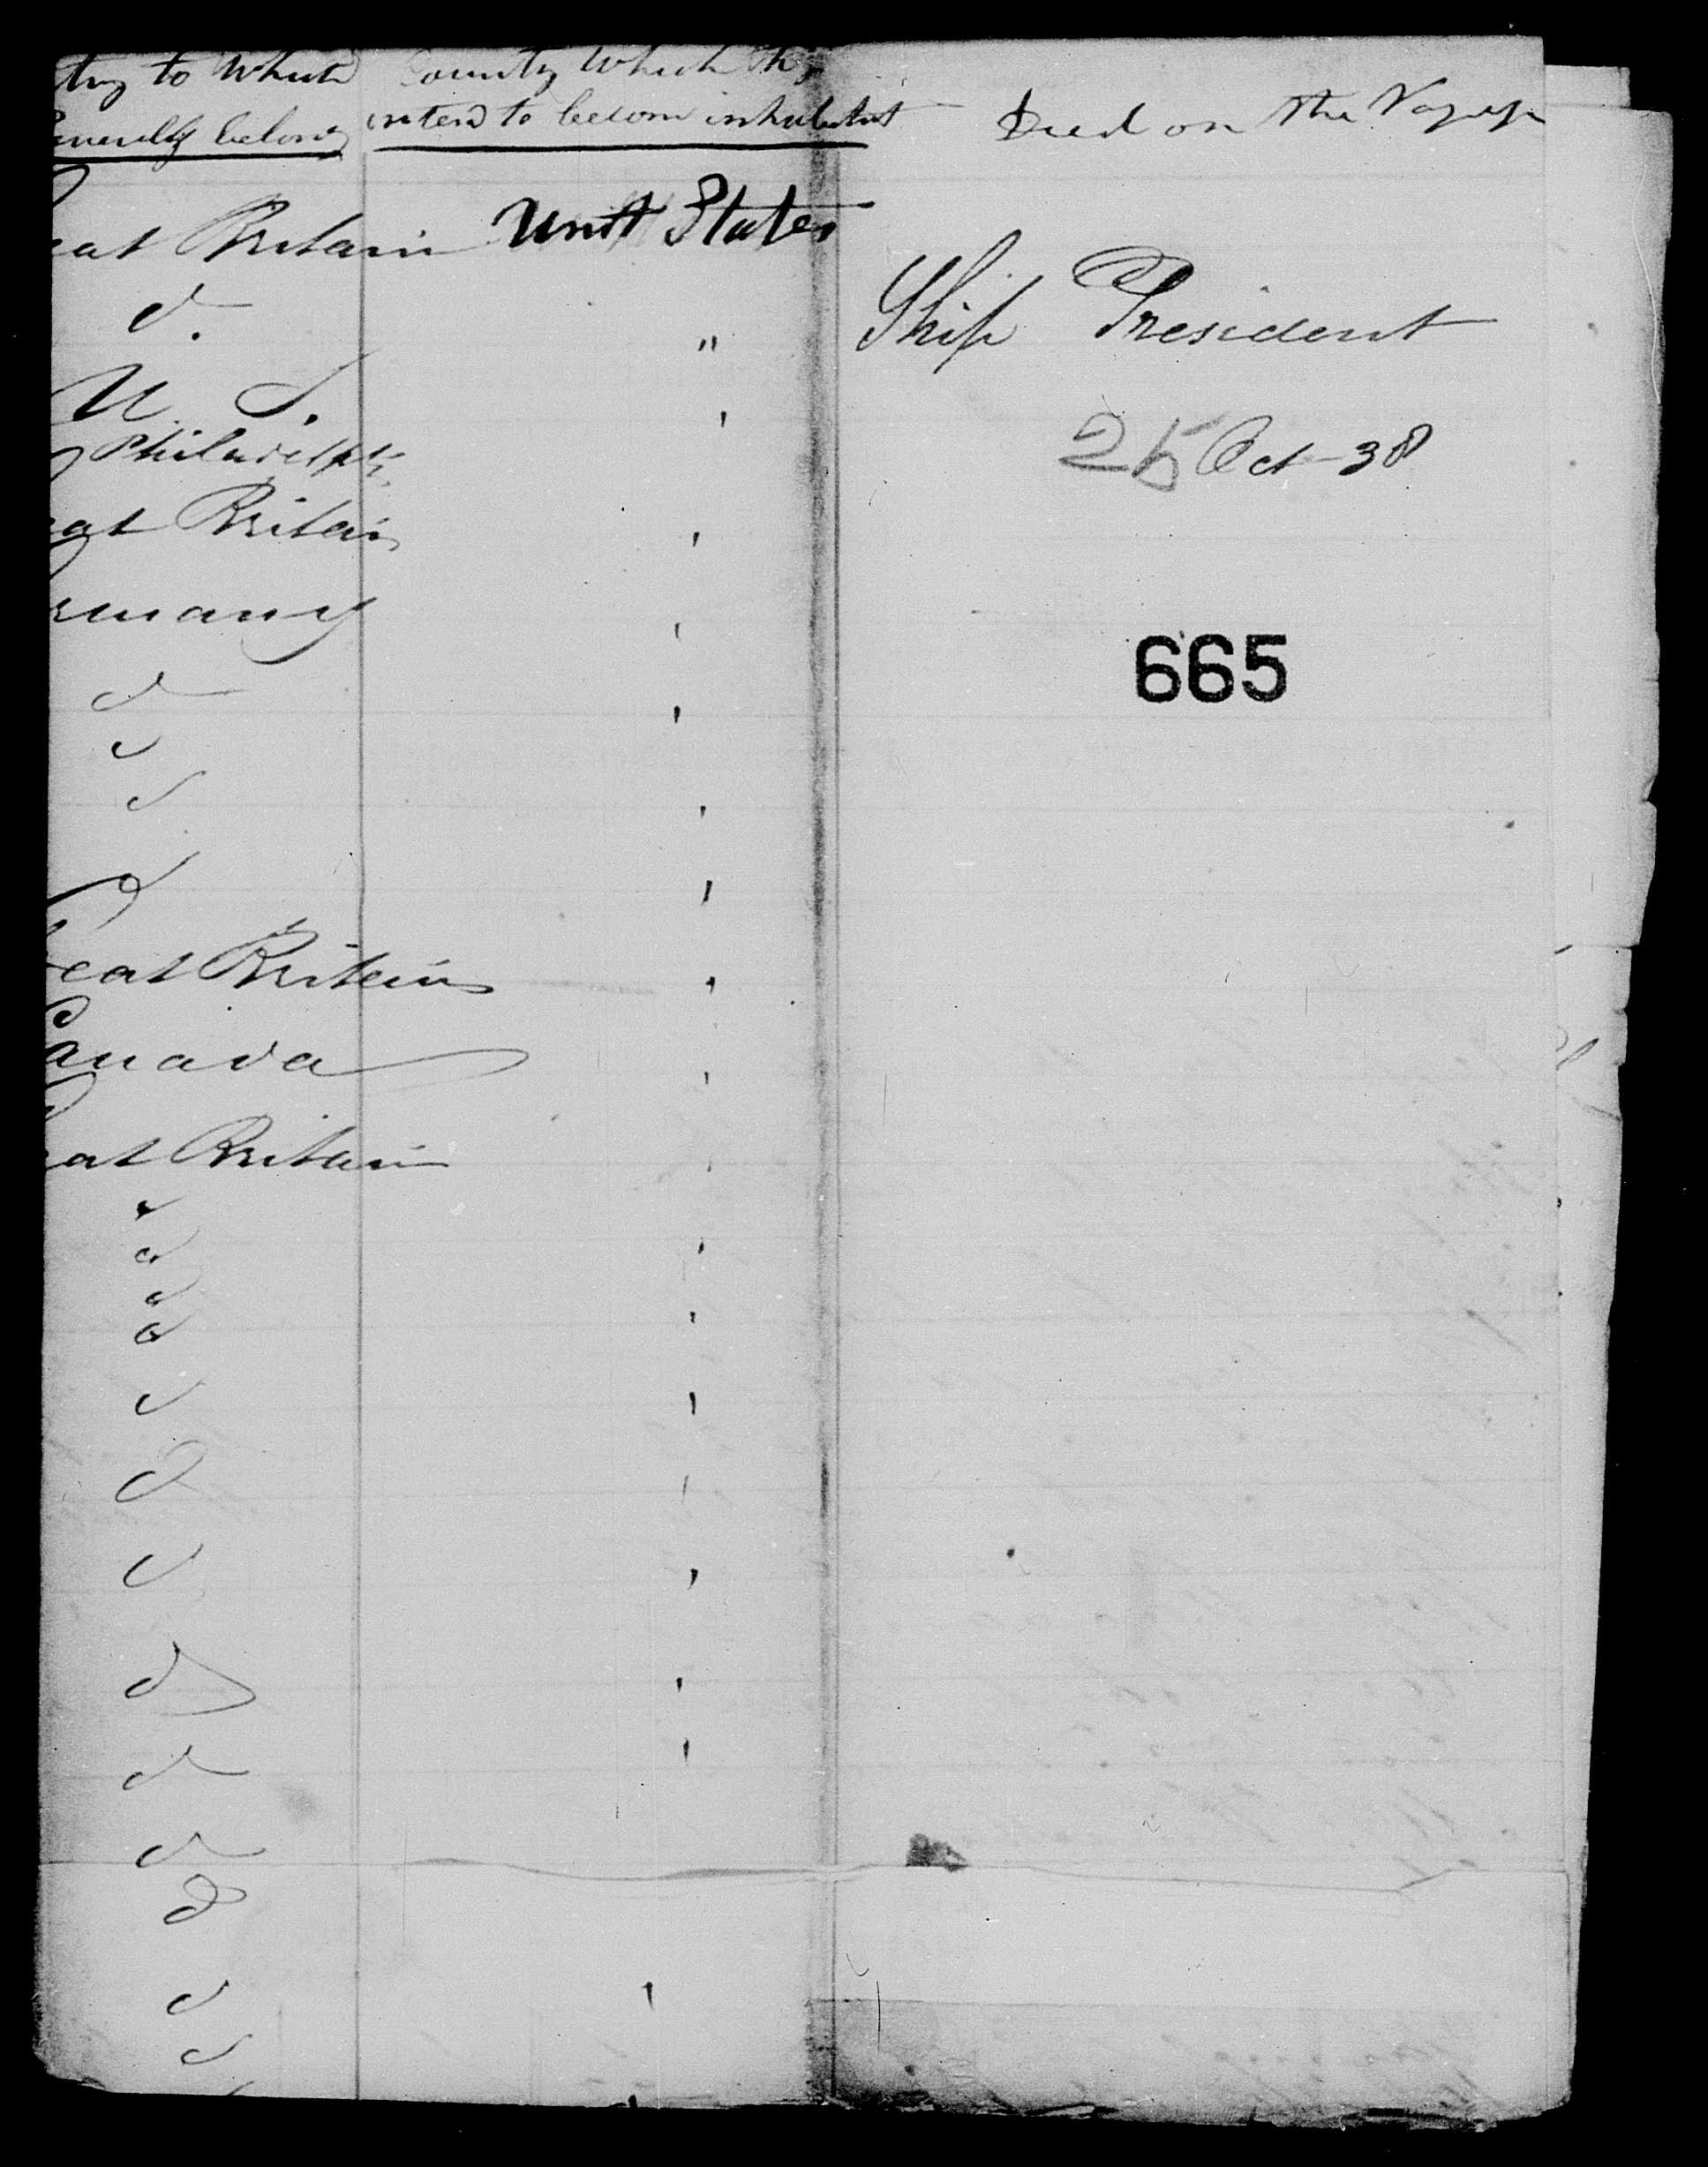 try to Which County Which they
enerally belong intend to become inhabitants Died on the Voyage
eat Britain Unit States
d. "
Ship President
U. S. '
Philadelph
25 Oct 38
eat Britain '
rmany '
665
d '
d
d '
d '
eat Britain '
Canada '
eat Britain '
d
d '
d
d '
d '
d '
d '
d '
d '
d
d
d '
d